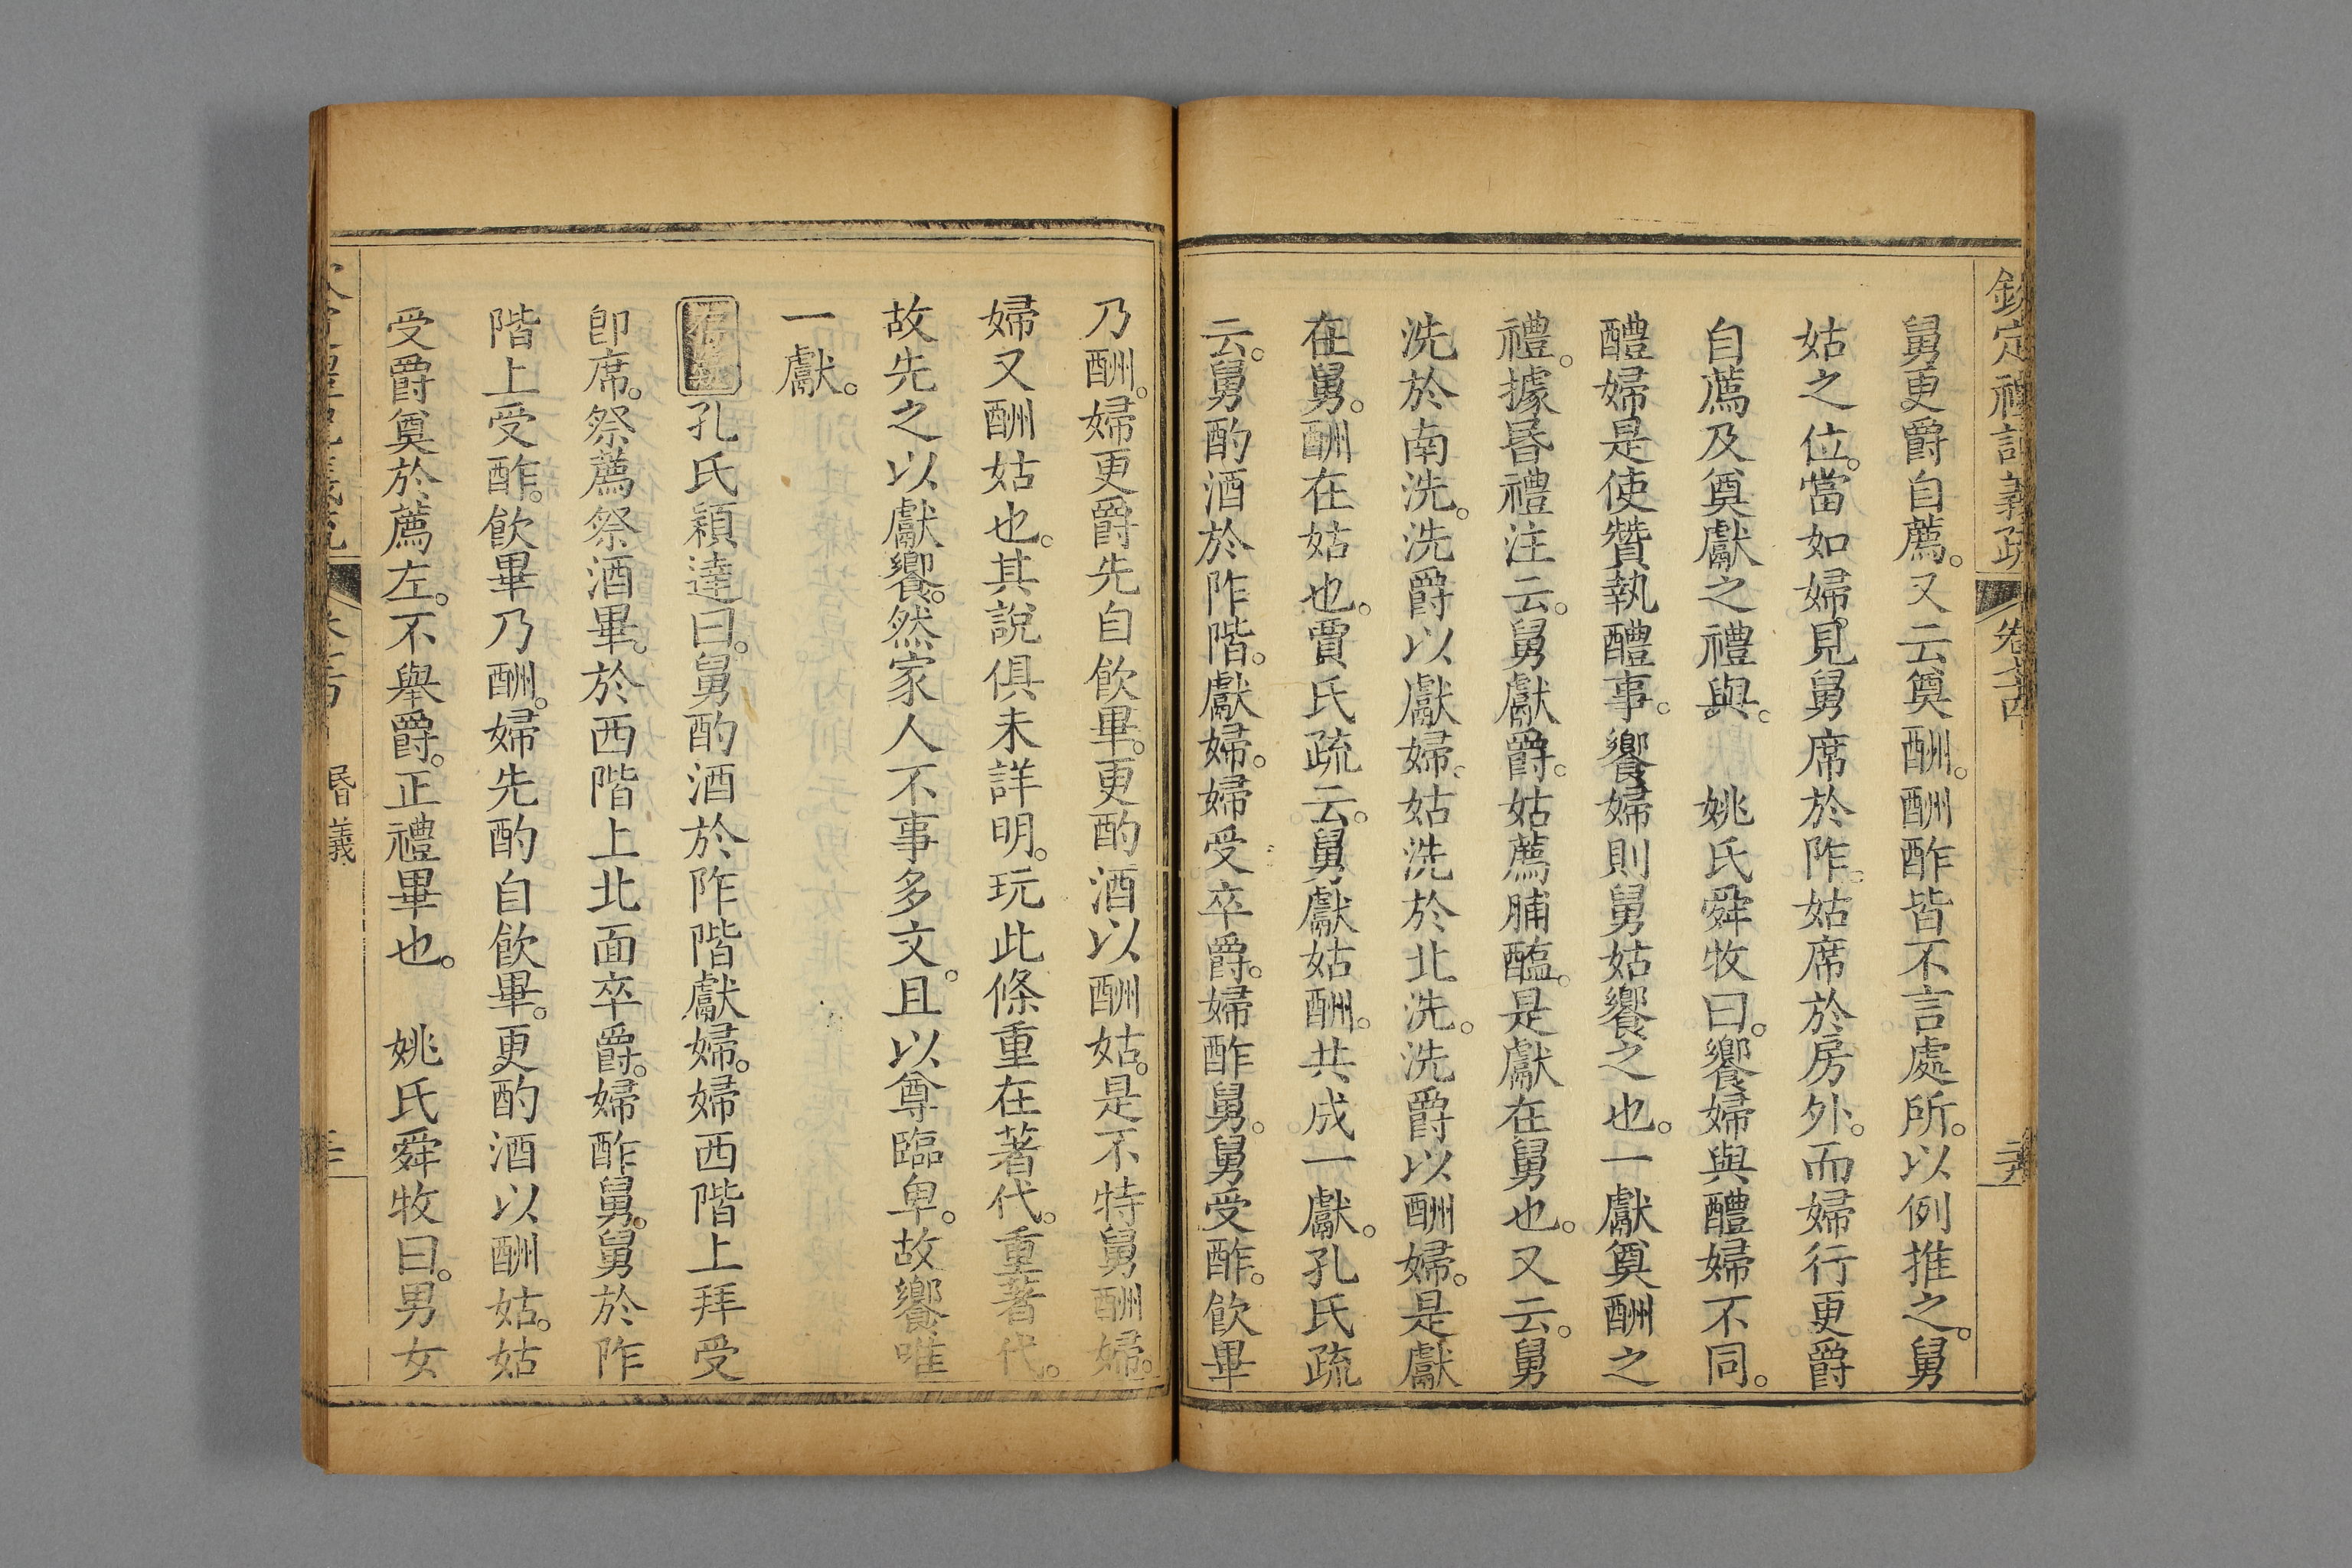 欽定禮記義疏
舅更爵自薦。又云奠酬。酬酢皆不言處所。以例推之。舅
姑之位。當如婦見。舅席於阼。姑席於房外。而婦行更爵
自薦及奠獻之禮與。　姚氏舜牧曰。饗婦與醴婦不同。
醴婦是使贊執醴事。饗婦則舅姑饗之也。一獻奠酬之
禮。據昏禮注云。舅獻爵。姑薦脯醢。是獻在舅也。又云。舅
洗於南洗。洗爵以獻婦。姑洗於北洗。洗爵以酬婦。是獻
在舅。酬在姑也。賈氏疏云。舅獻姑酬。共成一獻。孔氏疏
云。舅酌酒於阼階。獻婦。婦受卒爵。婦酢舅。舅受酢。飲畢
乃酬。婦更爵先自飲畢。更酌酒以酬姑。是不特舅酬婦。
婦又酬姑也。其說俱未詳明。玩此條重在著代。重著代。
故先之以獻饗。然家人不事多文。且以尊臨卑。故饗唯
一獻。
孔氏穎達曰。舅酌酒於阼階獻婦。婦西階上拜受
卽席。祭薦祭酒畢。於西階上北面卒爵。婦酢舅。舅於阼
階上受酢。飲畢乃酬。婦先酌自飲畢。更酌酒以酬姑。姑
受爵奠於薦左。不舉爵。正禮畢也。　姚氏舜牧曰。男女
昬義